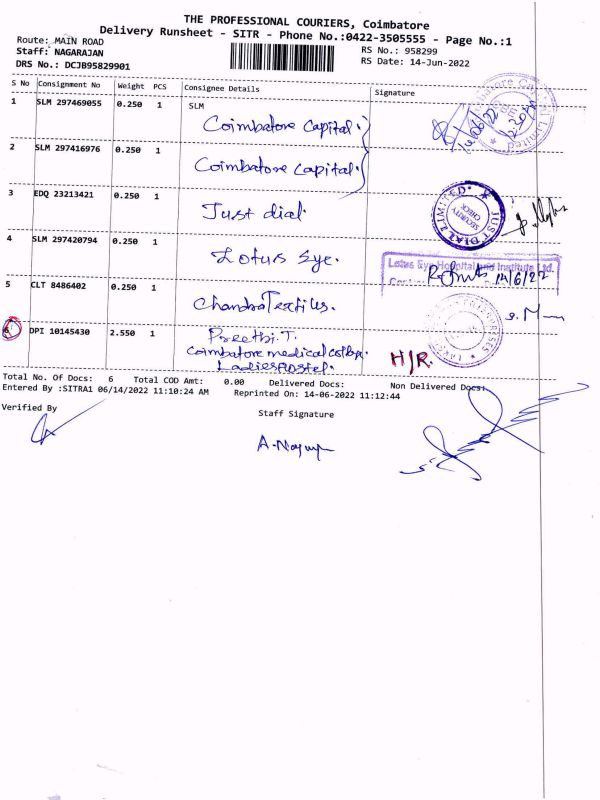 THE PROFESSIONAL COURIERS, Coimbatore
Delivery Runsheet - SITR - Phone No.:0422-3505555 - Page No.:1
Route: MAIN ROAD
RS No.: 958299
Staff: NAGARAJAN
RS Date: 14-Jun-2022
DRS No.: DCJB95829901
S No Consignment No Weight PCS Consignee Details Signature
1 SLM 297469055 0.250 1 SLM
Coimbatore Capital.
2 SLM 297416976 0.250 1
Coimbatore Capital.
3 EDQ 23213421 0.250 1
Just dial.
JUST DIAL LIMITED
SECURITY CHECK
4 SLM 297420794 0.250 1
Lotus Eye.
Lotus Eye Hospital and Institute Ltd.
14/6/22
5 CLT 8486402 0.250 1
Chandra Textiles.
6 DPI 10145430 2.550 1
Preethi.T.
Coimbatore medical
Ladies Hostel.
H/R.
Total No. Of Docs: 6 Total COD Amt: 0.00 Delivered Docs: Non Delivered Docs:
Entered By :SITRA1 06/14/2022 11:10:24 AM Reprinted On: 14-06-2022 11:12:44
Verified By
Staff Signature